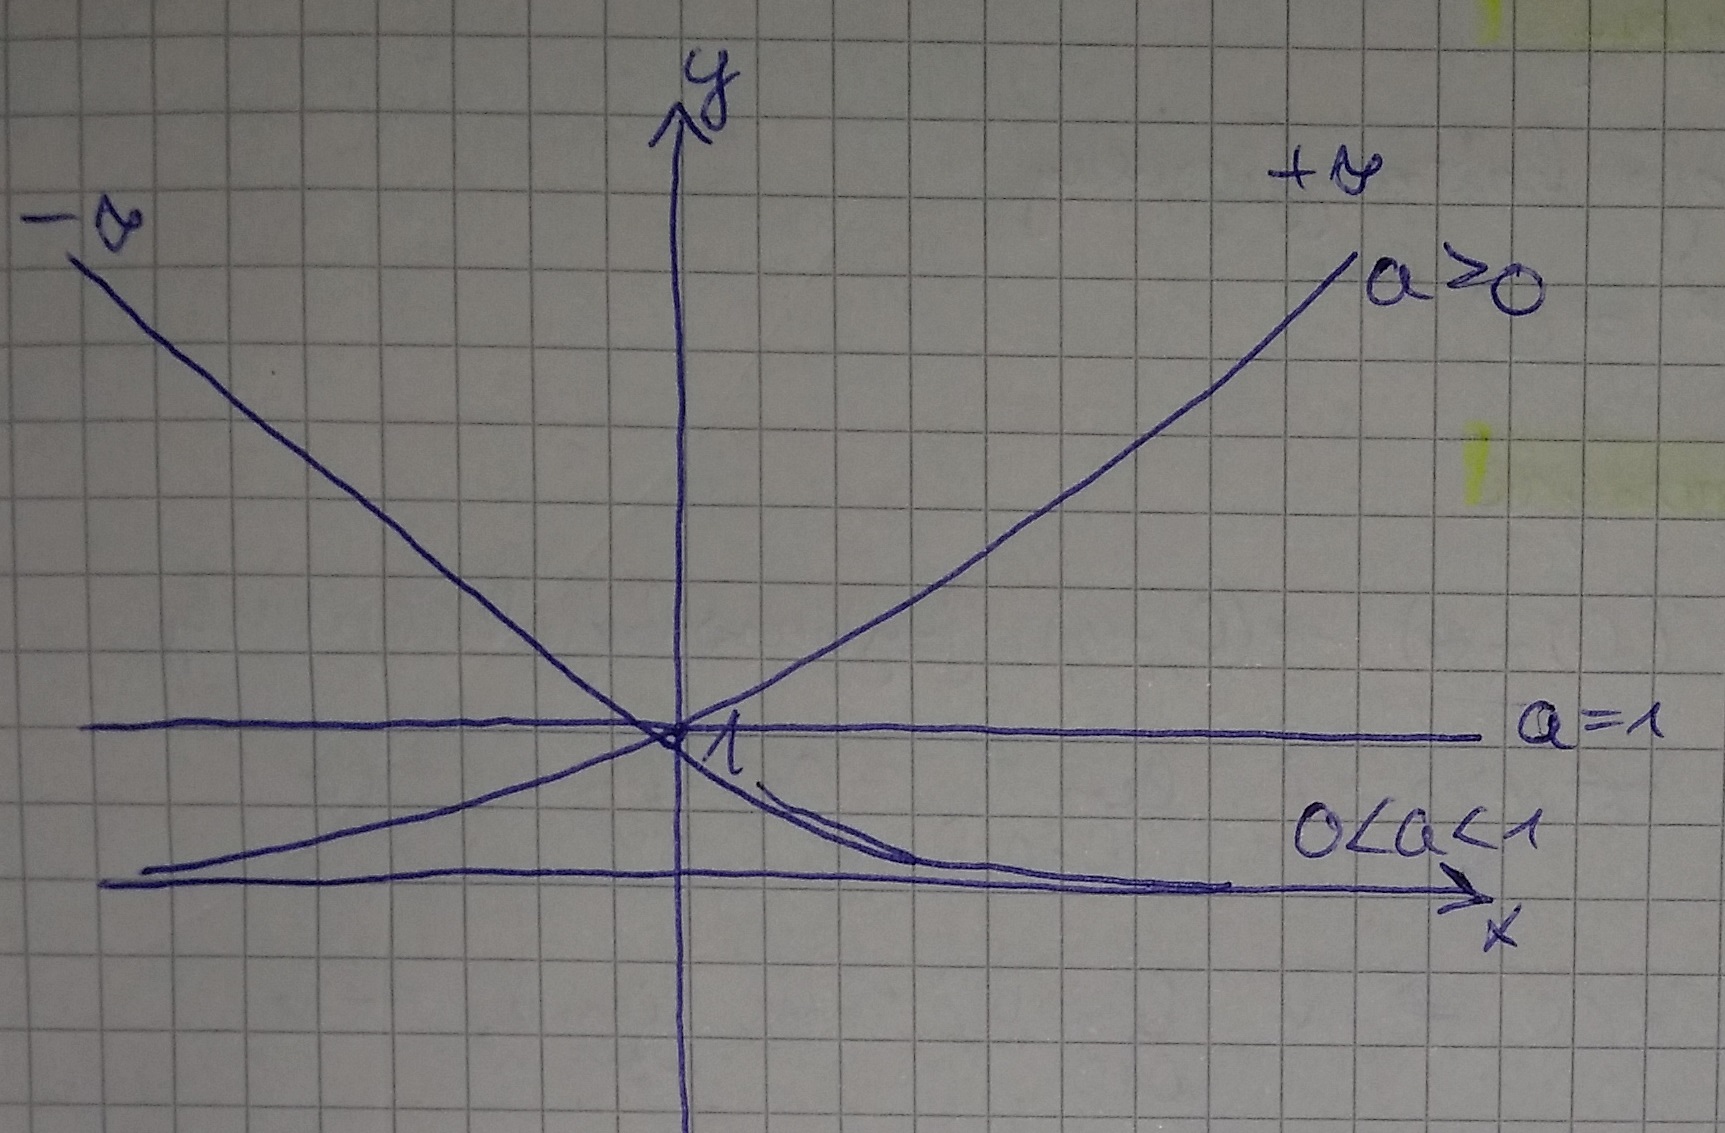 y
-∞
+∞
a>0
1
a=1
0<a<1
x